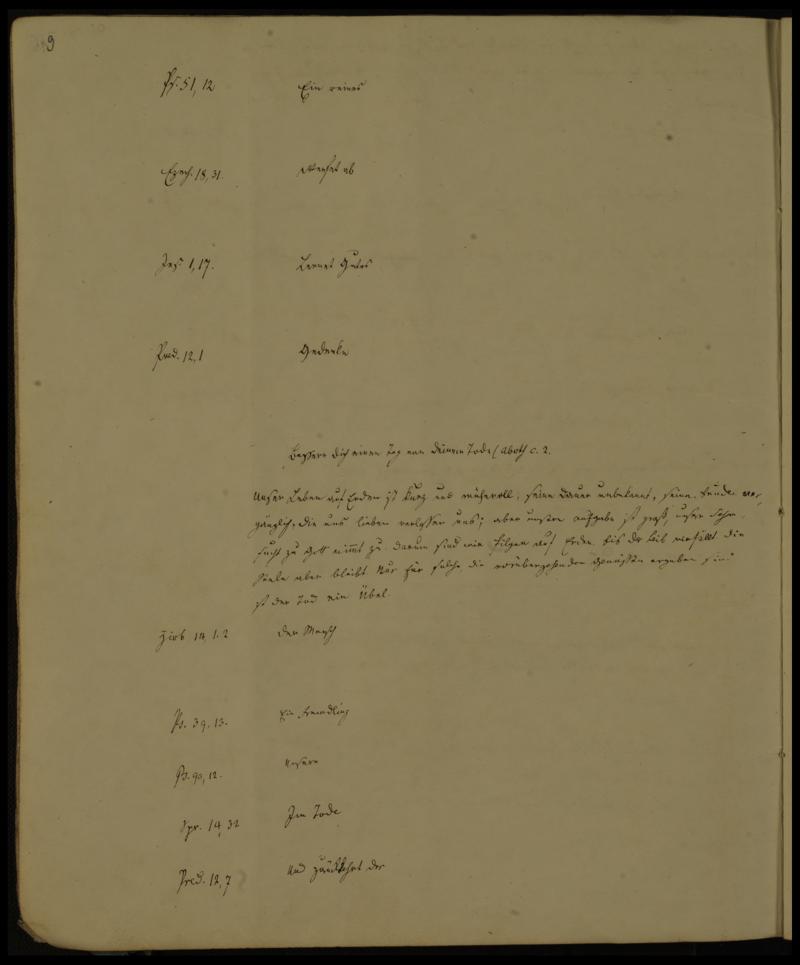 9
Ps. 51, 12 Ein reines
Ezech. 18, 31. Werfet ab
Jes. 1, 17. Lernet Gutes
Pred. 12, 1 Gedenke
Bessere dich einen Tag vor deinem Tode (Aboth c. 2.
Unser Leben auf Erden ist kurz und mühevoll, seine Dauer unbekannt, seine Freude ver-
gänglich, die uns lieben verlassen uns; aber unsere Aufgabe ist groß, unsere Sehn-
sucht zu Gott nimmt zu. Darum sind wir Pilger auf Erden. Der Leib verfällt die
Seele aber bleibt. Nur für solche die vorübergehenden Genüssen ergeben sind
ist der Tod ein Übel.
Hiob 14, 1. 2 Der Mensch
Ps. 39, 13. Ein Fremdling
Ps. 90, 12. Unsere
Spr. 14, 32 Im Tode
Pred. 12, 7 Und zurückkehrt der